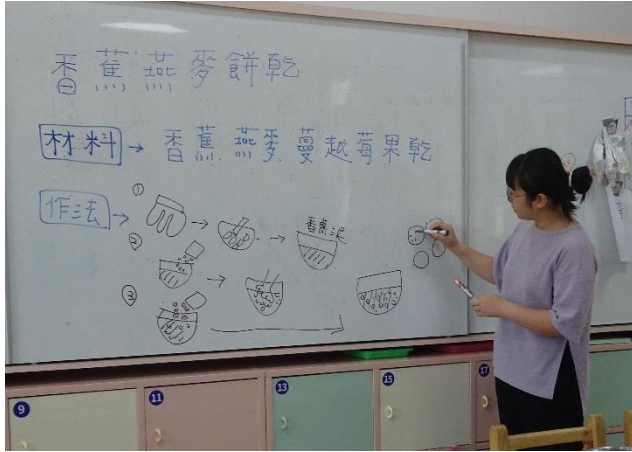 香蕉燕麥餅乾
材料→香蕉燕麥蔓越莓果乾
作法→
①
香蕉泥
②
③
9
11
13
15
17